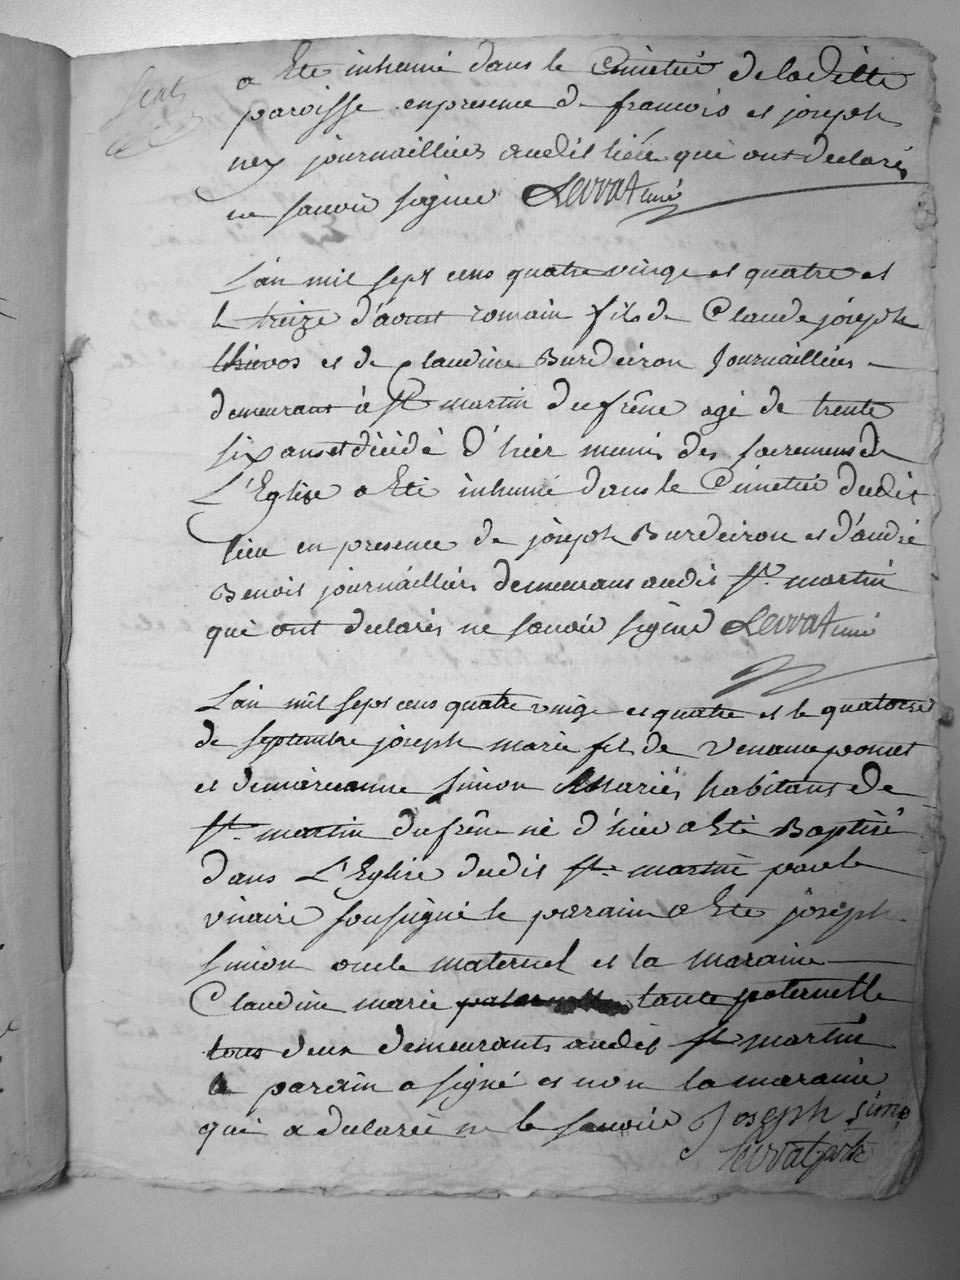 a Ete inhumé dans le Cimetiè de laditte
paroisse enpresence de francois et joseph
ney journailliers audit liéu qui ont declarés
ne savoir signer Levrat curé
L'an mil sept cens quatre vingt et quatre et
le treize d'aoust romain fils de Claude joseph
et de Claudine Burdeiron Journailliers
demeurant à St martin du frêne agé de trente
six ans et décédé d'hier munis des sacremens de
L'Eglise a Eté inhumé dans le Cimetié dudit
lieu en presence de joseph Burdeiron et d'andré
Benoit journailliers demeurans audit St. martin
qui ont declarés ne savoir signer Levrat curé
L'an mil sept cens quatre vingt et quatre et le quatorze
de septembre joseph marie fils de
et de marianne Simon Mariés habitans de
St. martin du frêne né d'hier a Eté Baptisé
dans L'Eglise dudit St. martin par le
vicaire soussigné le parain a Ete joseph
simon oncle maternel et la maraine
Claudine marie tante paternelle
tous deux demeurants audit St martin
le parain a signé et non la maraine
qui a declarée ne le savoir Joseph simon
Levrat